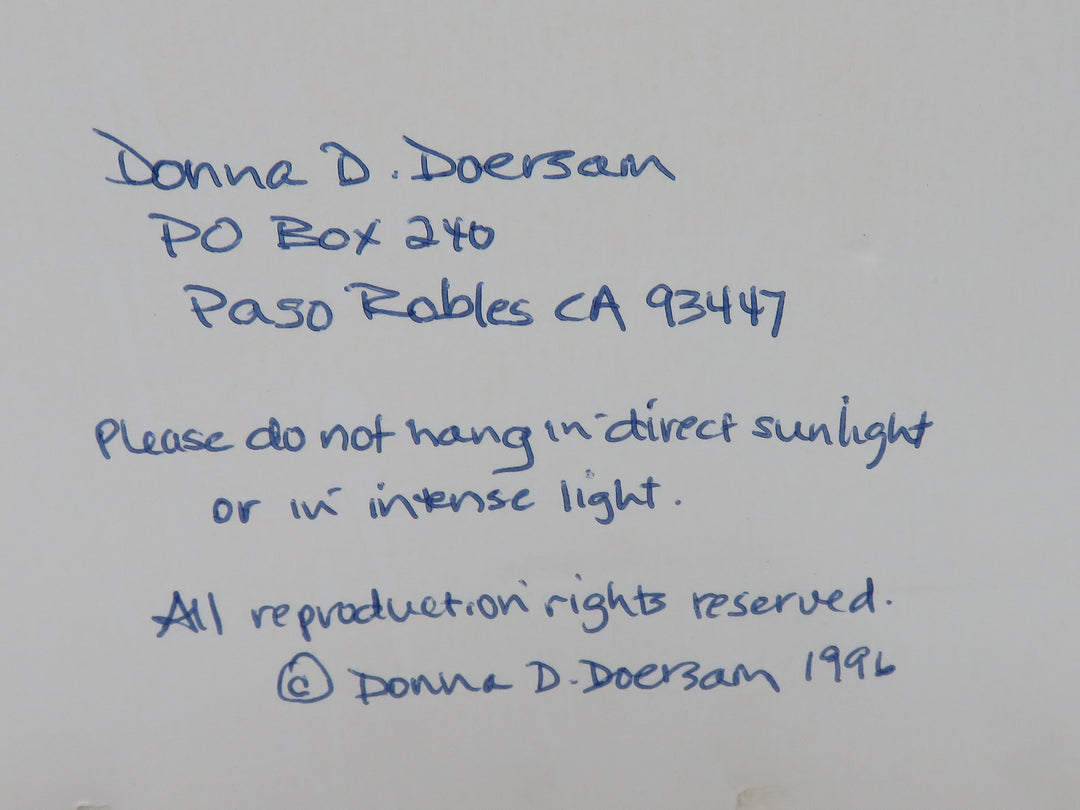 Donna D. Doersam
PO Box 240
Paso Robles CA 93447
Please do not hang in direct sunlight
or in intense light.
All reproduction rights reserved.
© Donna D. Doersam 1996